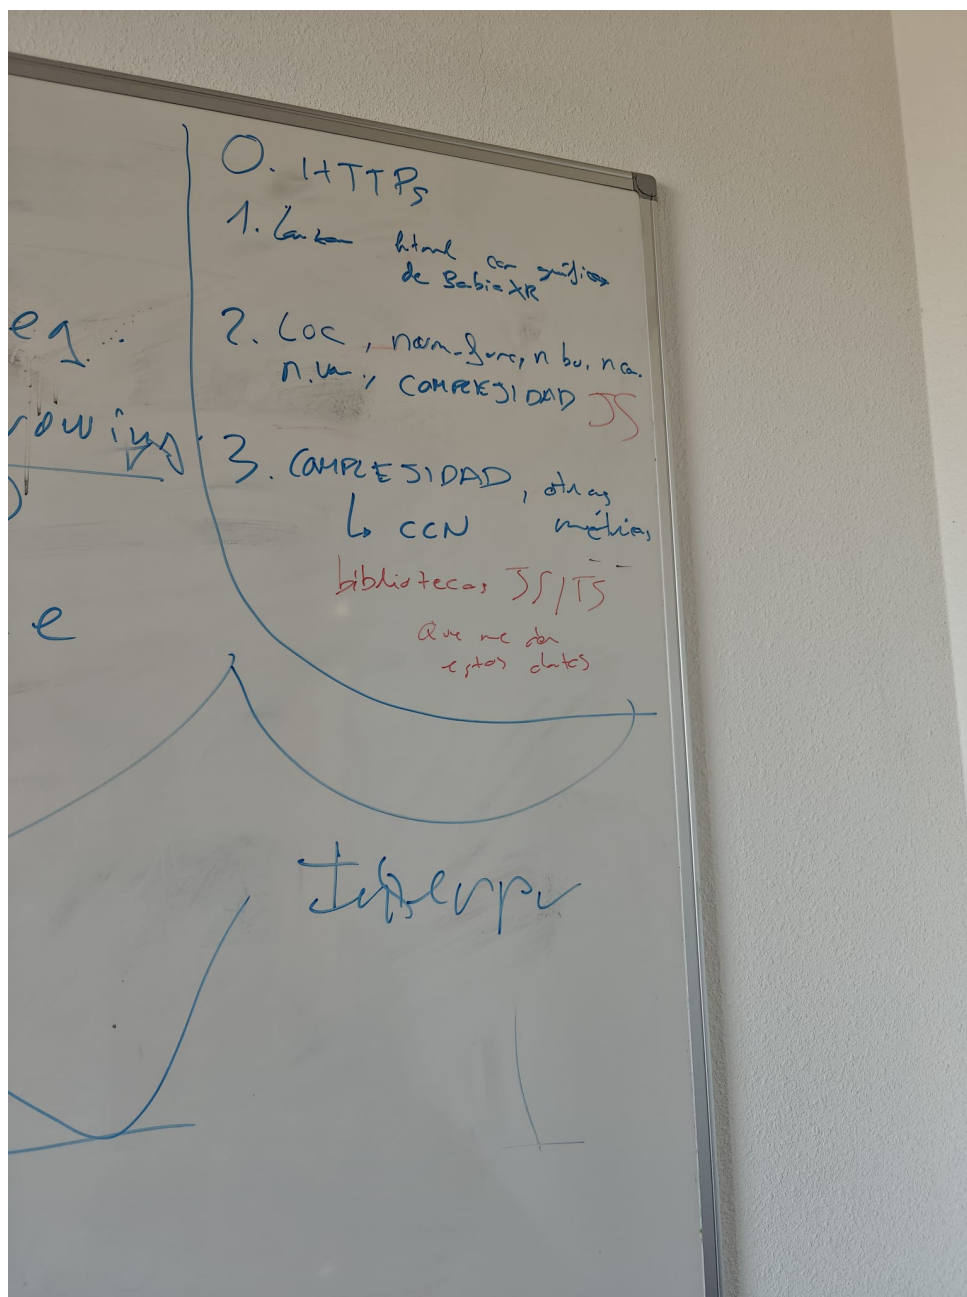 0. HTTPs
1. Lanzar html con gráficos
de BabiaXR
eg...
2. LOC, num_func, n bu, nca.
n.va., COMPLEJIDAD JS
rowing
3. COMPLEJIDAD, otras
↳ CCN métricas
bibliotecas JS/TS
e
Que me dan
estos datos